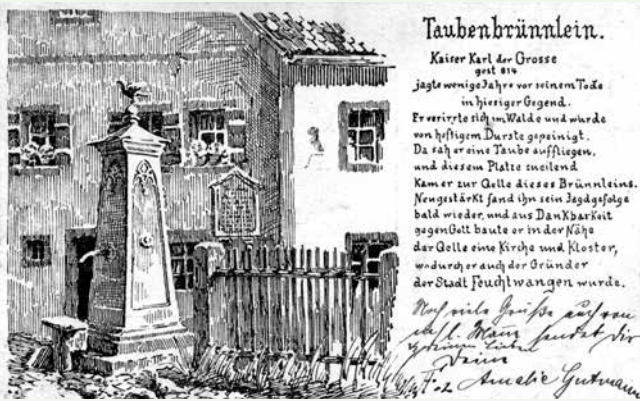 Taubenbrünnlein.
Kaiser Karl der Grosse
gest 814
jagte wenige Jahre vor seinem Tode
in hiesiger Gegend.
Er verirrte sich im Walde und wurde
von heftigem Durste gepeinigt.
Da sah er eine Taube auffliegen,
und diesem Platze zueilend
Kam er zur Qelle dieses Brünnleins.
Neugestärkt fand ihn sein Jagdgefolge
bald wieder, und aus Dankbarkeit
gegen Gott baute er in der Nähe
der Qelle eine Kirche und Kloster,
wodurch er auch der Gründer
der Stadt Feuchtwangen wurde.
Noch viele Grüße auch von
Mann sendet Dir
Deine
Amalie Gutmann